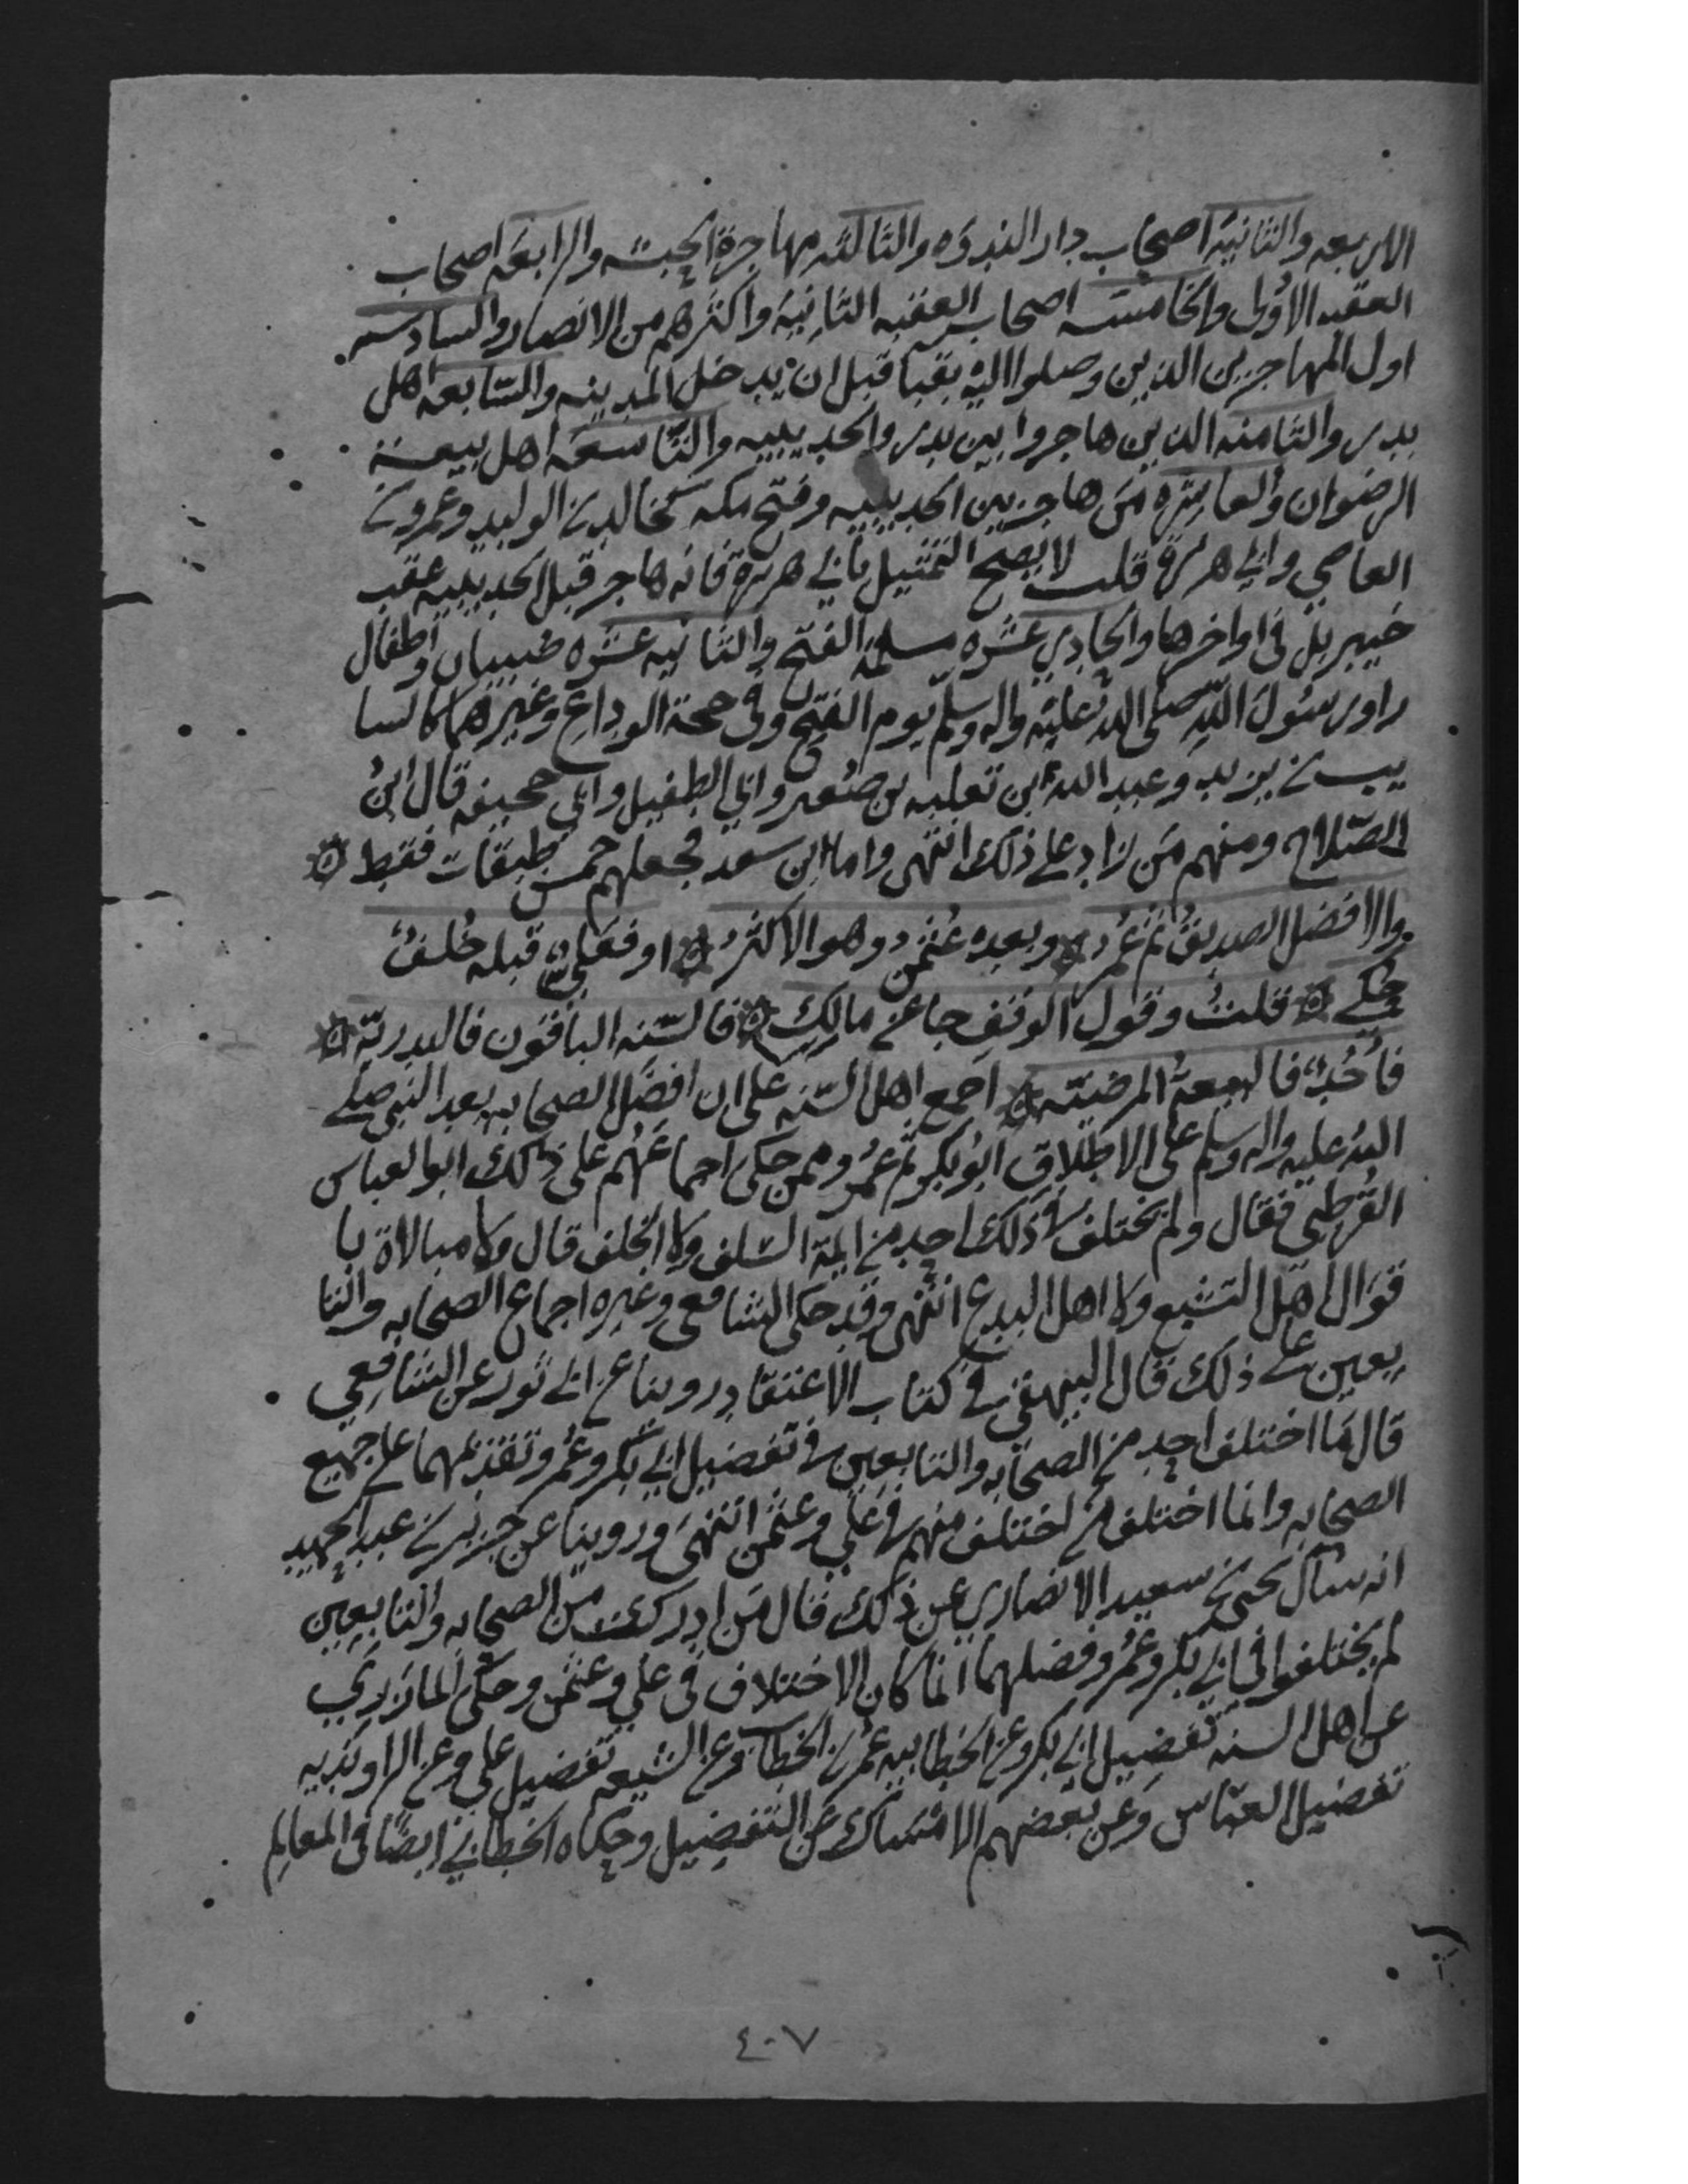 الاربعه والثانية اصحاب دار الندوه والثالثه مهاجرة الحبشه والرابعه اصحاب
العقبه الاولى والخامسه اصحاب العقبه الثانيه واكثرهم من الانصار والسادسه
اول المهاجرين الذين وصلوا اليه بقبا قبل ان يدخل المدينه والسابعه اهل
بدر والثامنه الذين هاجروا بين بدر والحديبيه والتاسعه اهل بيعة
الرضوان والعاشره من هاجر بين الحديبيه وفتح مكه كخالد بن الوليد وعمرو بن
العاصي وابي هريرة قلت لا يصح التمثيل بابي هريرة فانه هاجر قبل الحديبيه عقب
خيبر بل في اواخرها والحادي عشره مسلمة الفتح والثانيه عشره صبيان واطفال
راوا رسول الله صلى الله عليه واله وسلم يوم الفتح وفي حجة الوداع وغيرهما كالسا
يب بن يزيد وعبد الله ابن ثعلبه بن صعير وابي الطفيل وابي جحيفه قال ابن
الصلاح ومنهم من زاد على ذلك انتهى واما ابن سعد فجعلهم خمس طبقات فقط
والافضل الصديق ثم عمر وبعده عثمن وهو الاكثر او فعلي قبله خلف
حكي قلت وقول الوقف جا عن مالك فالسته الباقون فالبدريّه
فأحُد فالبيعة المرضيّه اجمع اهل السّنه على ان افضل الصحابه بعد النبي صلى
الله عليه واله وسلم على الاطلاق ابو بكر ثم عمر وممن حكى اجماعهم على ذلك ابو العباس
القرطبي فقال ولم يختلف في ذلك احد من ايمة السلف ولا الخلف قال ولا مبالاة با
قوال اهل التشيع ولا اهل البدع انتهى وقد حكى الشافعي وغيره اجماع الصحابه والتا
بعين على ذلك قال البيهقي في كتاب الاعتقاد روينا عن ابي ثور عن الشافعي
قال ما اختلف احد من الصحابه والتابعين في تفضيل ابي بكر وعمر وتقديمهما على جميع
الصحابه وانما اختلف من اختلف منهم في علي وعثمن انتهى وروينا عن جرير بن عبد الحميد
انه سأل يحيى بن سعيد الانصاري عن ذلك فقال من ادركت من الصحابه والتابعين
لم يختلفوا في ابي بكر وعمر وفضلهما انما كان الاختلاف في علي وعثمن وحكى المازري
عن اهل السنه تفضيل ابي بكر وعن الخطابيه عمر بن الخطاب وعن الشيعه تفضيل علي وعن الراونديه
تفضيل العباس وعن بعضهم الامساك عن التفضيل وحكاه الخطابي ايضا في المعالم
٤٠٧